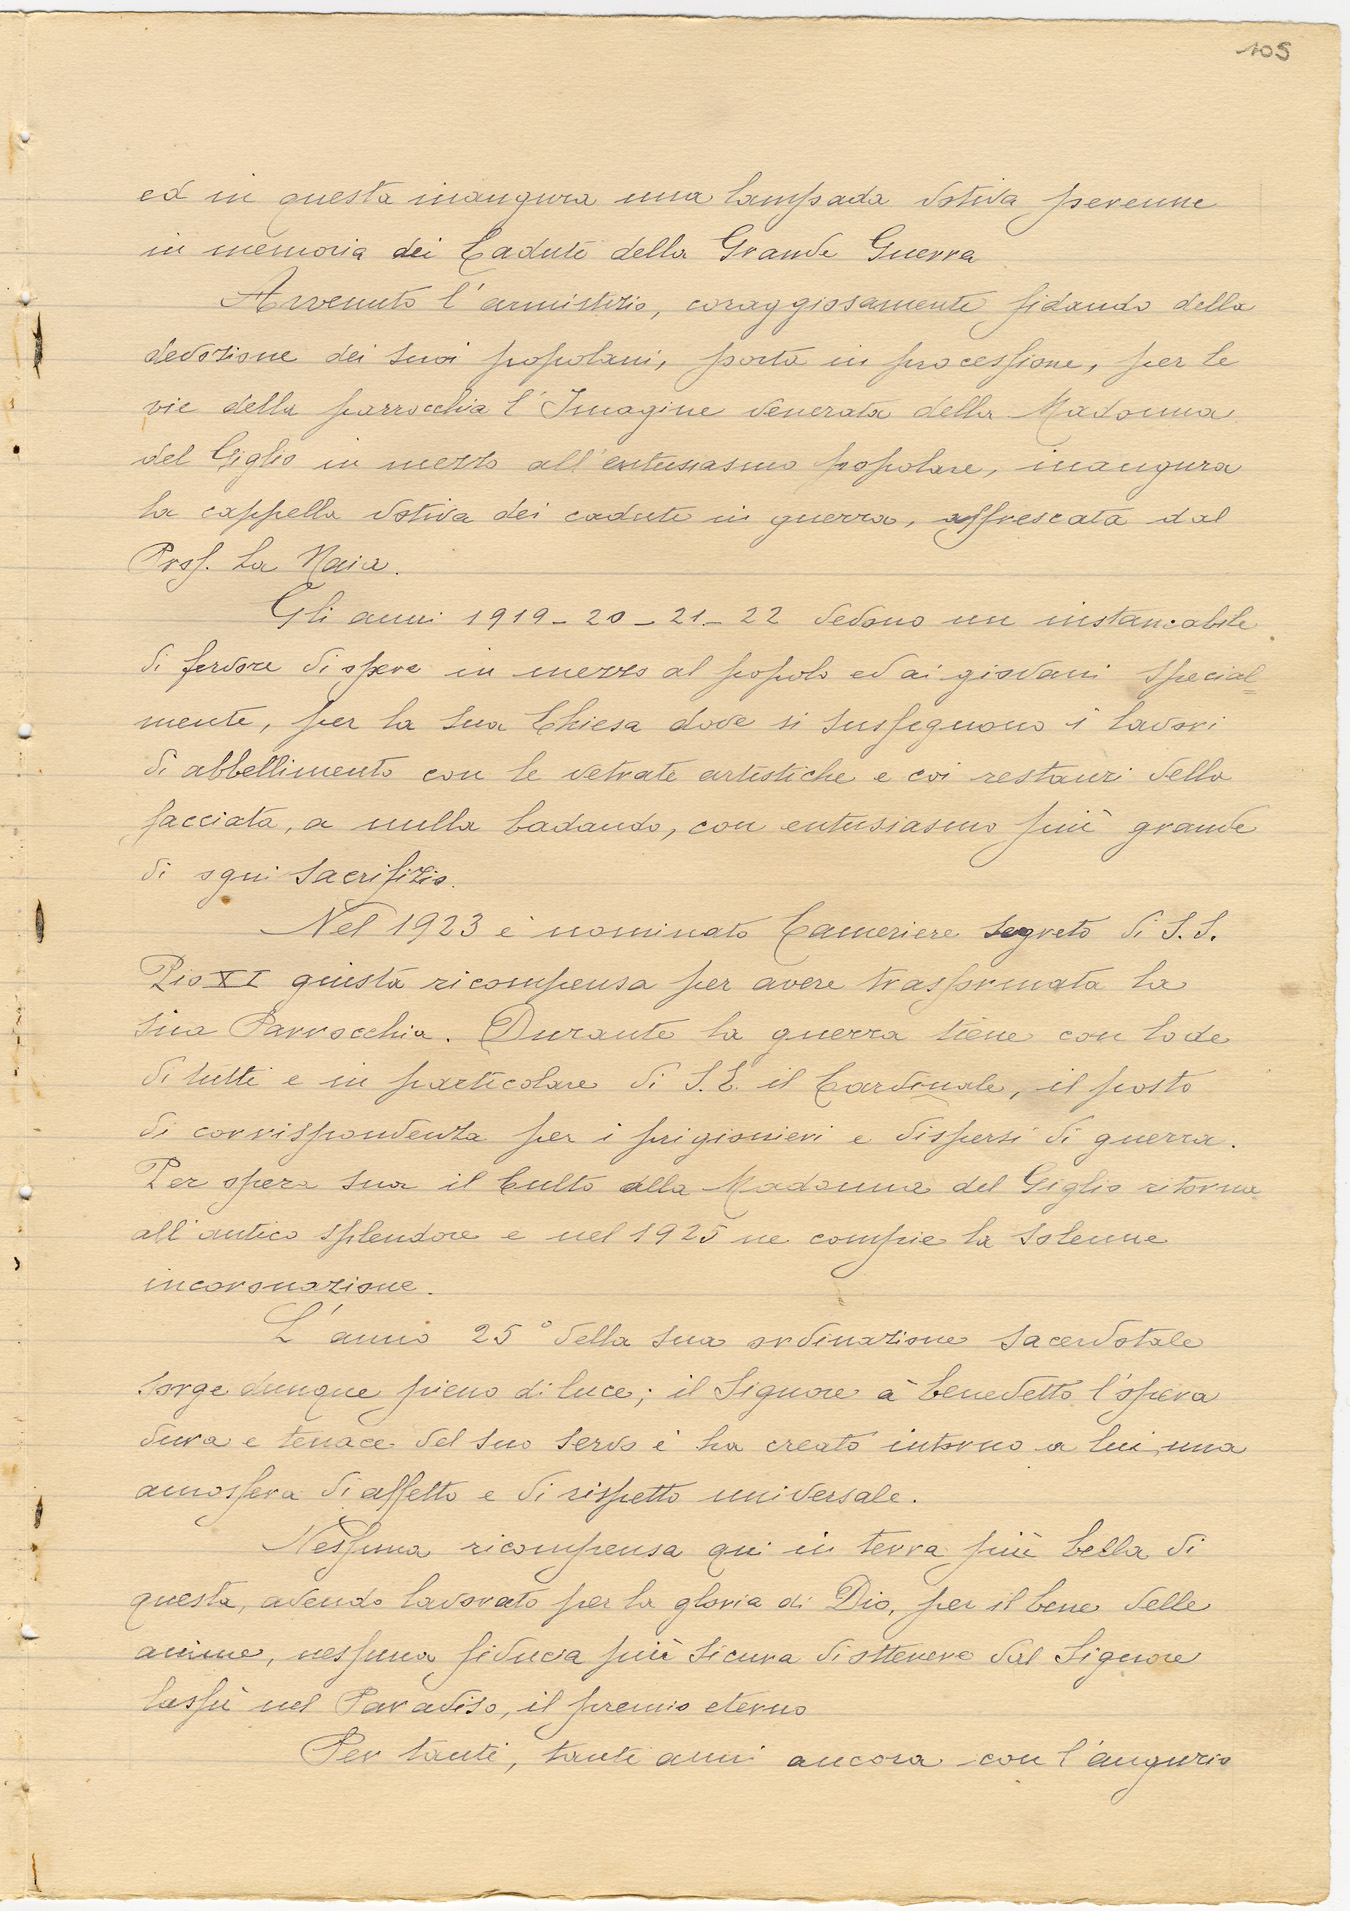 105
ed in questa inaugura una lampada votiva perenne
in memoria dei Caduti della Grande Guerra
Avvenuto l'armistizio, coraggiosamente fidando della
devozione dei suoi popolani, porta in processione, per le
vie della parrocchia l'Imagine venerata della Madonna
del Giglio in mezzo all'entusiasmo popolare, inaugura
la cappella votiva dei caduti in guerra, affrescata dal
Prof. La Naia.
Gli anni 1919-20-21-22 vedono un instancabile
di fervore di opere in mezzo al popolo ed ai giovani special=
mente, per la sua Chiesa dove si susseguono i lavori
di abbellimento con le vetrate artistiche e coi restauri della
facciata, a nulla badando, con entusiasmo più grande
di ogni sacrifizio.
Nel 1923 è nominato Cameriere segreto di S.S.
Pio XI giusta ricompensa per avere trasformata la
sua Parrocchia. Durante la guerra tiene con lode
di tutti e in particolare di S.E. il Cardinale, il posto
di corrispondenza per i prigionieri e dispersi di guerra.
Per opera sua il Culto alla Madonna del Giglio ritorna
all'antico splendore e nel 1925 ne compie la solenne
incoronazione.
L'anno 25° della sua ordinazione sacerdotale
sorge dunque pieno di luce; il Signore à benedetto l'opera
dura e tenace del suo servo e ha creato intorno a lui, una
atmosfera di affetto e di rispetto universale.
Nessuna ricompensa qui in terra più bella di
questa, avendo lavorato per la gloria di Dio, per il bene delle
anime, nessuna fiducia più sicura di ottenere dal Signore
lassù nel Paradiso, il premio eterno
Per tanti, tanti anni ancora con l'augurio